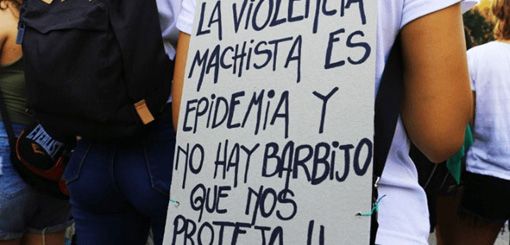 LA VIOLENCIA
MACHISTA ES
EPIDEMIA Y
NO HAY BARBIJO
QUE NOS
PROTEJA !!
EVERLAST